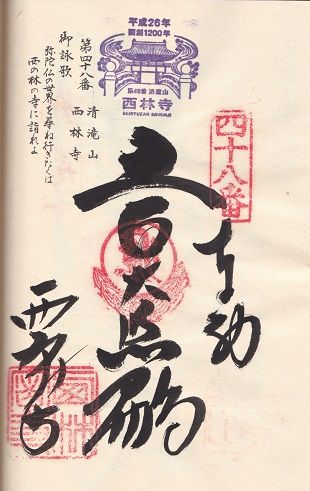 第四十八番 清滝山
西林寺
御詠歌
弥陀仏の世界を尋ね行きたくば
西の林の寺に詣れよ
平成26年
開創1200年
第48番 清滝山
西林寺
SEIRYUZAN SAIRINJI
四十八番
奉納
西林寺